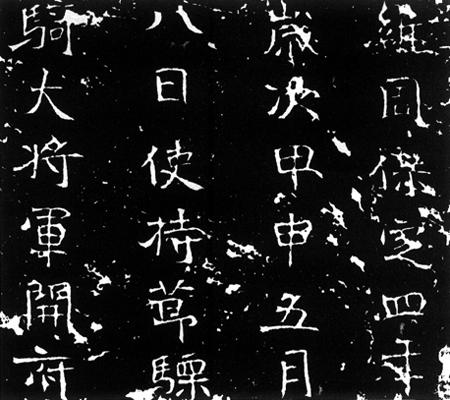 維周保定四年
歲次甲申五月
八日使持莭驃
騎大将軍開府